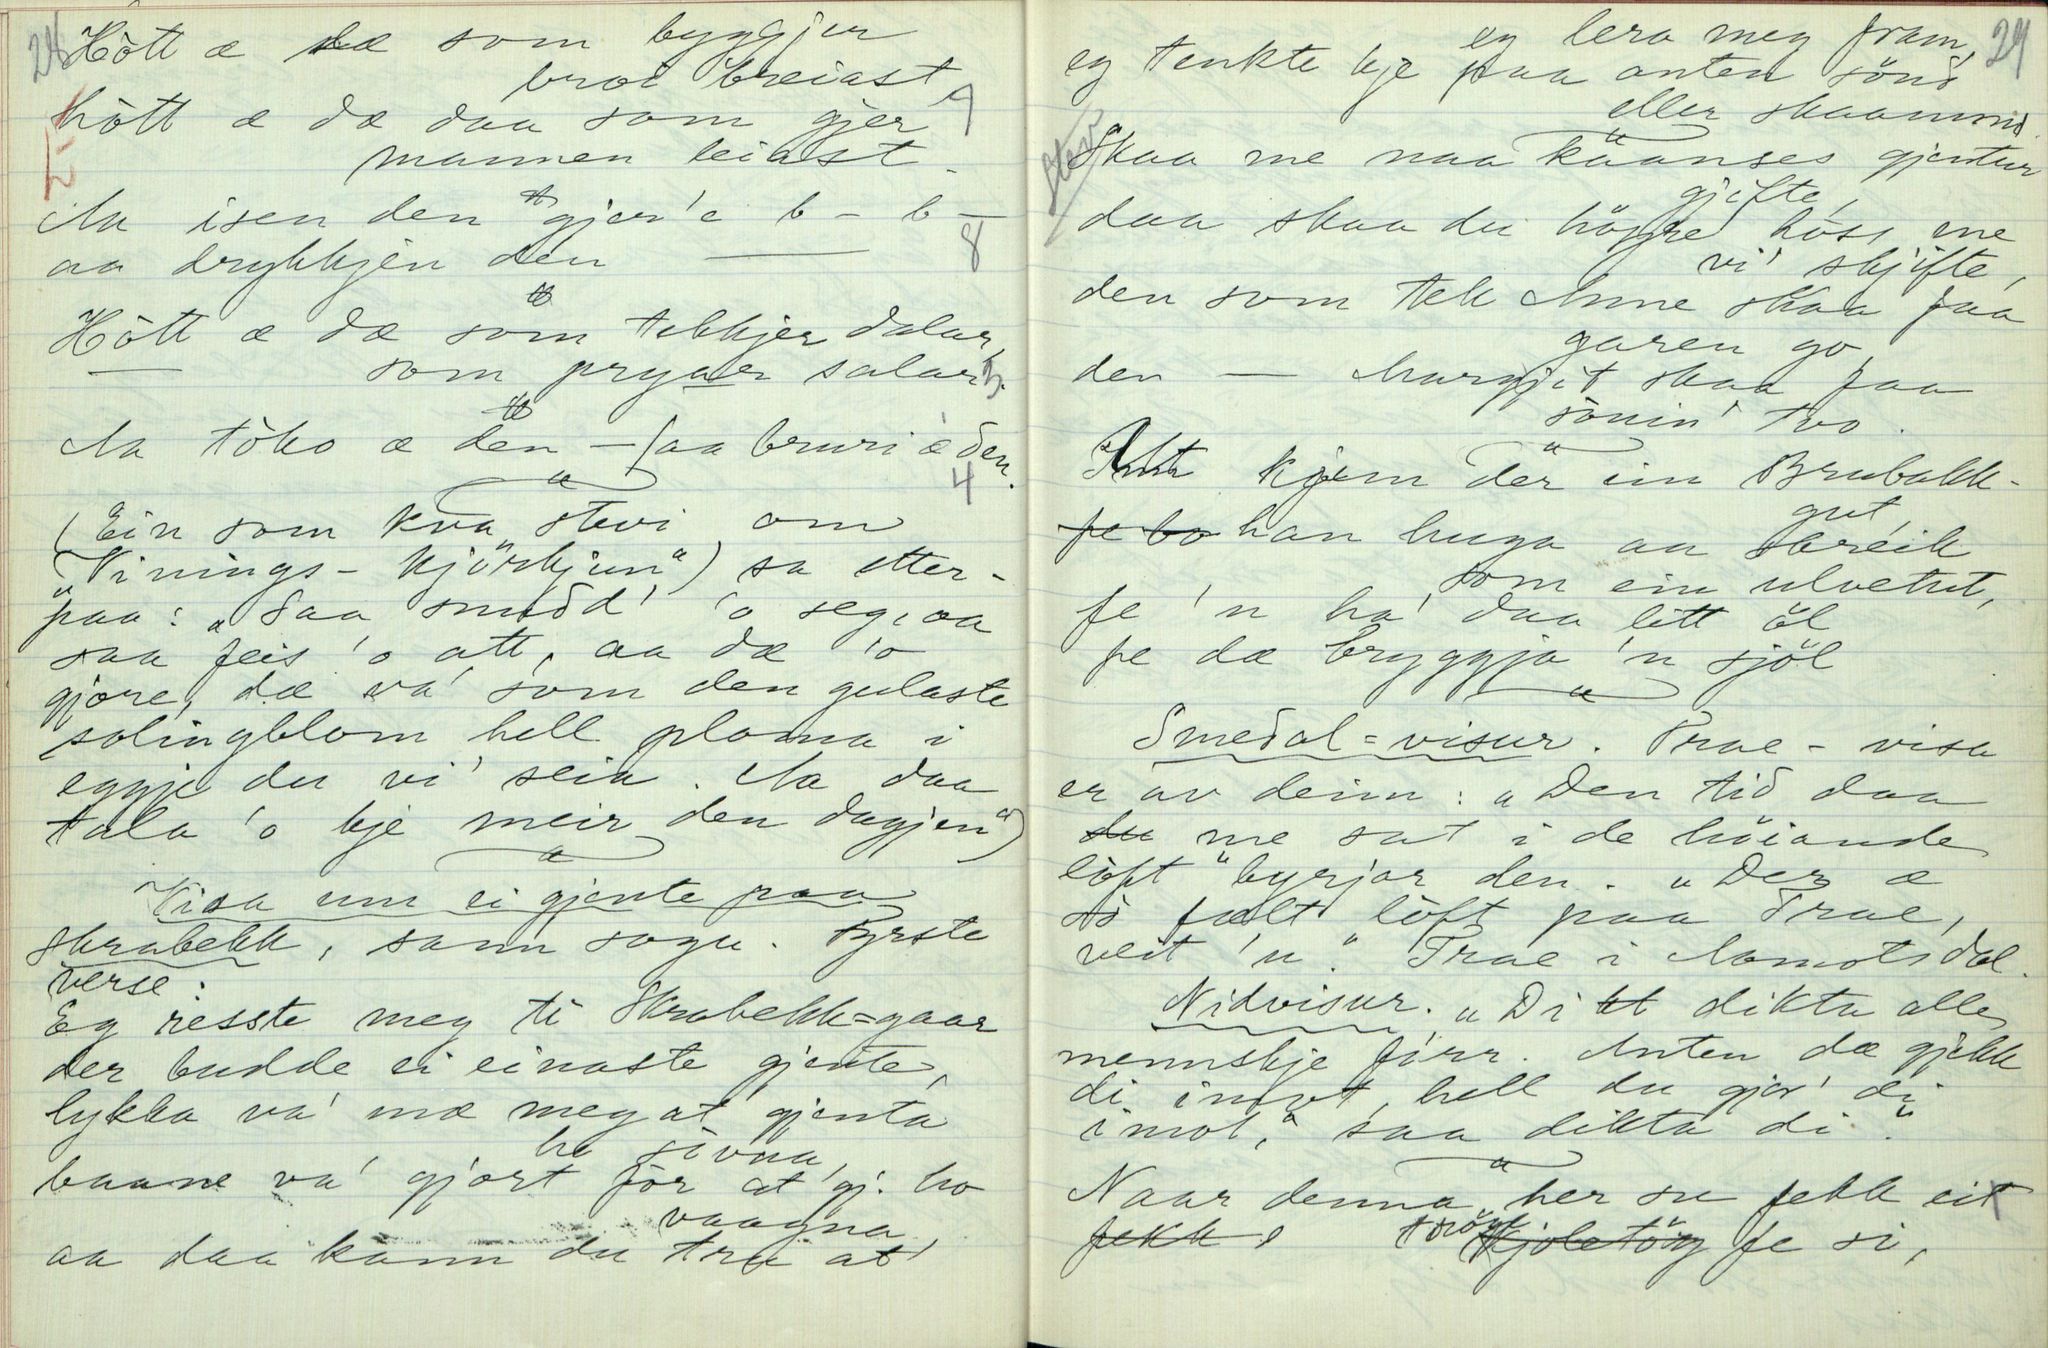 28
Hòtt æ dæ som byggjer
broi breiast
7
hòtt æ dæ daa som gjer
mannen leiast.
Aa isen den gjer'e b – b –
8
aa drykkjen den ———
Hòtt æ dæ som tekkjer dalar,
som pryar salar.
3
Aa tòko æ den – saa bruri æ den.
4
(Ein som kva stevi om
"Vinings-kjörkjun") sa etter-
paa: "Saa snudd' 'o seg, aa
saa feis 'o att, aa dæ 'o
gjore, dæ va' som den gulaste
solingblom hell ploma i
eggje du vi' seia. Aa daa
tala 'o kje meir den dagjen")
Visa um ei gjente paa
Skrabekk, sama sogu. Fyrste
verse:
Eg resste meg ti Skrabekk=gaar
der budde ei einaste gjente,
lykka va' mæ meg at gjenta
ho sòvna,
baane va' gjort för at gj. ho
vaagna
aa daa kann du tru at
29
eg lera meg fram,
eg tenkte kje paa anten sönd
eller skaamm.
Stev
Skaa me naa käanses gjentur
gjifte,
daa skaa du högre höss me
vi' skjifte,
den som tek Anne skaa faa
garen go,
den — Margjit skaa faa
sönin' tvo.
Att kjem der ein Brubakk-
gut,
fe bo han huga aa skreik
som ein ulvetut,
fe 'n ha' daa litt öl
fe dæ bryggja 'n sjöl
Smedal=visur. Trae-visa
er av deim: "Den tid daa
du me sat i de höiande
löft" byrjar den. "Der æ
so fælt löft paa Trae,
veit 'n." Trae i Aamotsdal.
Nidvisur. "Di dikta alle
mennskje firr. Anten dæ gjekk
di imot, hell du gjor' di
imot, saa dikta di".
Naar denna her su fekk eit
fekk kjoletöy fe si,